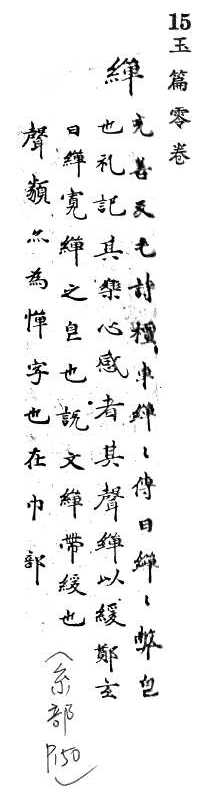 15玉篇零卷
繟
充善反毛詩檀車繟〻傳曰繟〻弊皃
也礼記其樂心感者其聲繟以緩鄭玄
曰繟寛繟之皃也說文繟帶緩也
聲類亦為幝字也在巾部
(糸部
P.150)